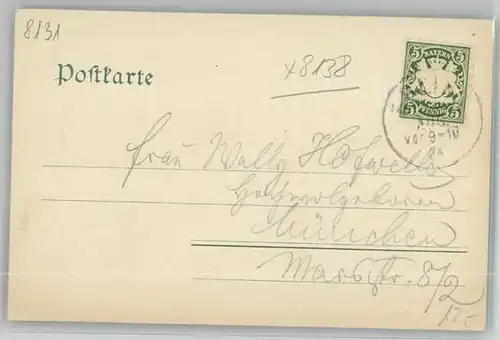 8131
Postkarte
x8138
5 BAYERN 5
5 PFENNIG 5
VOR 9-10
Frau Wally
Hochwolgeboren
München
Marsstr. 8/2
12.-